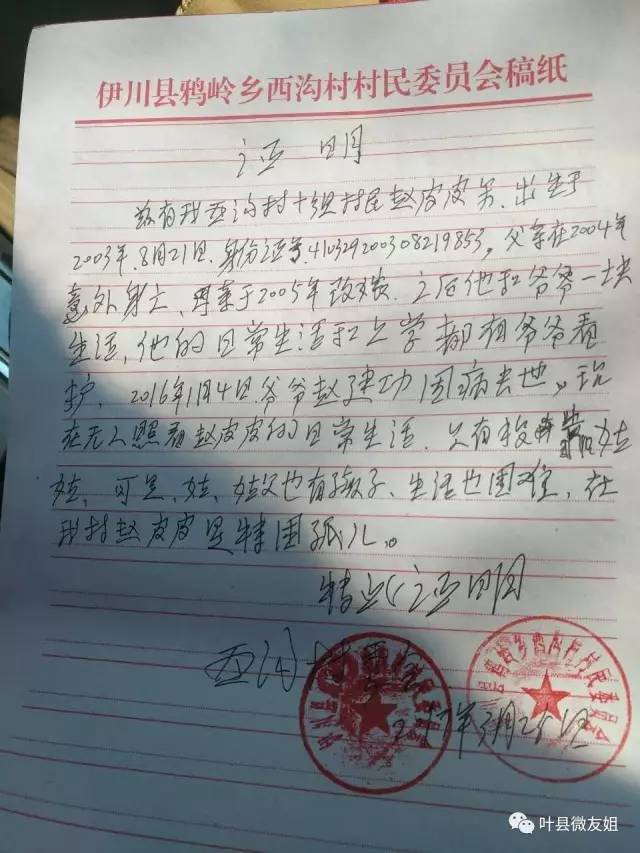 伊川县鸦岭乡西沟村村民委员会稿纸
证明
兹有我西沟村十组村民赵皮皮男.出生于
2003年.8月21日.身份证号410329200308219853,父亲在2004年
意外身亡、母亲于2005年改嫁.之后他和爷爷一块
生活,他的日常生活和上学都有爷爷看
护、2016年1月4日爷爷赵建功因病去世,现
在无人照看赵皮皮的日常生活.只有投奔姑
姑、可是、姑、姑父也有孩子、生活也困难,在
我村赵皮皮是特困孤儿。
特此证明
西沟村委会
2017年3月25日
鸦岭乡西沟村村民委员会
叶县微友姐